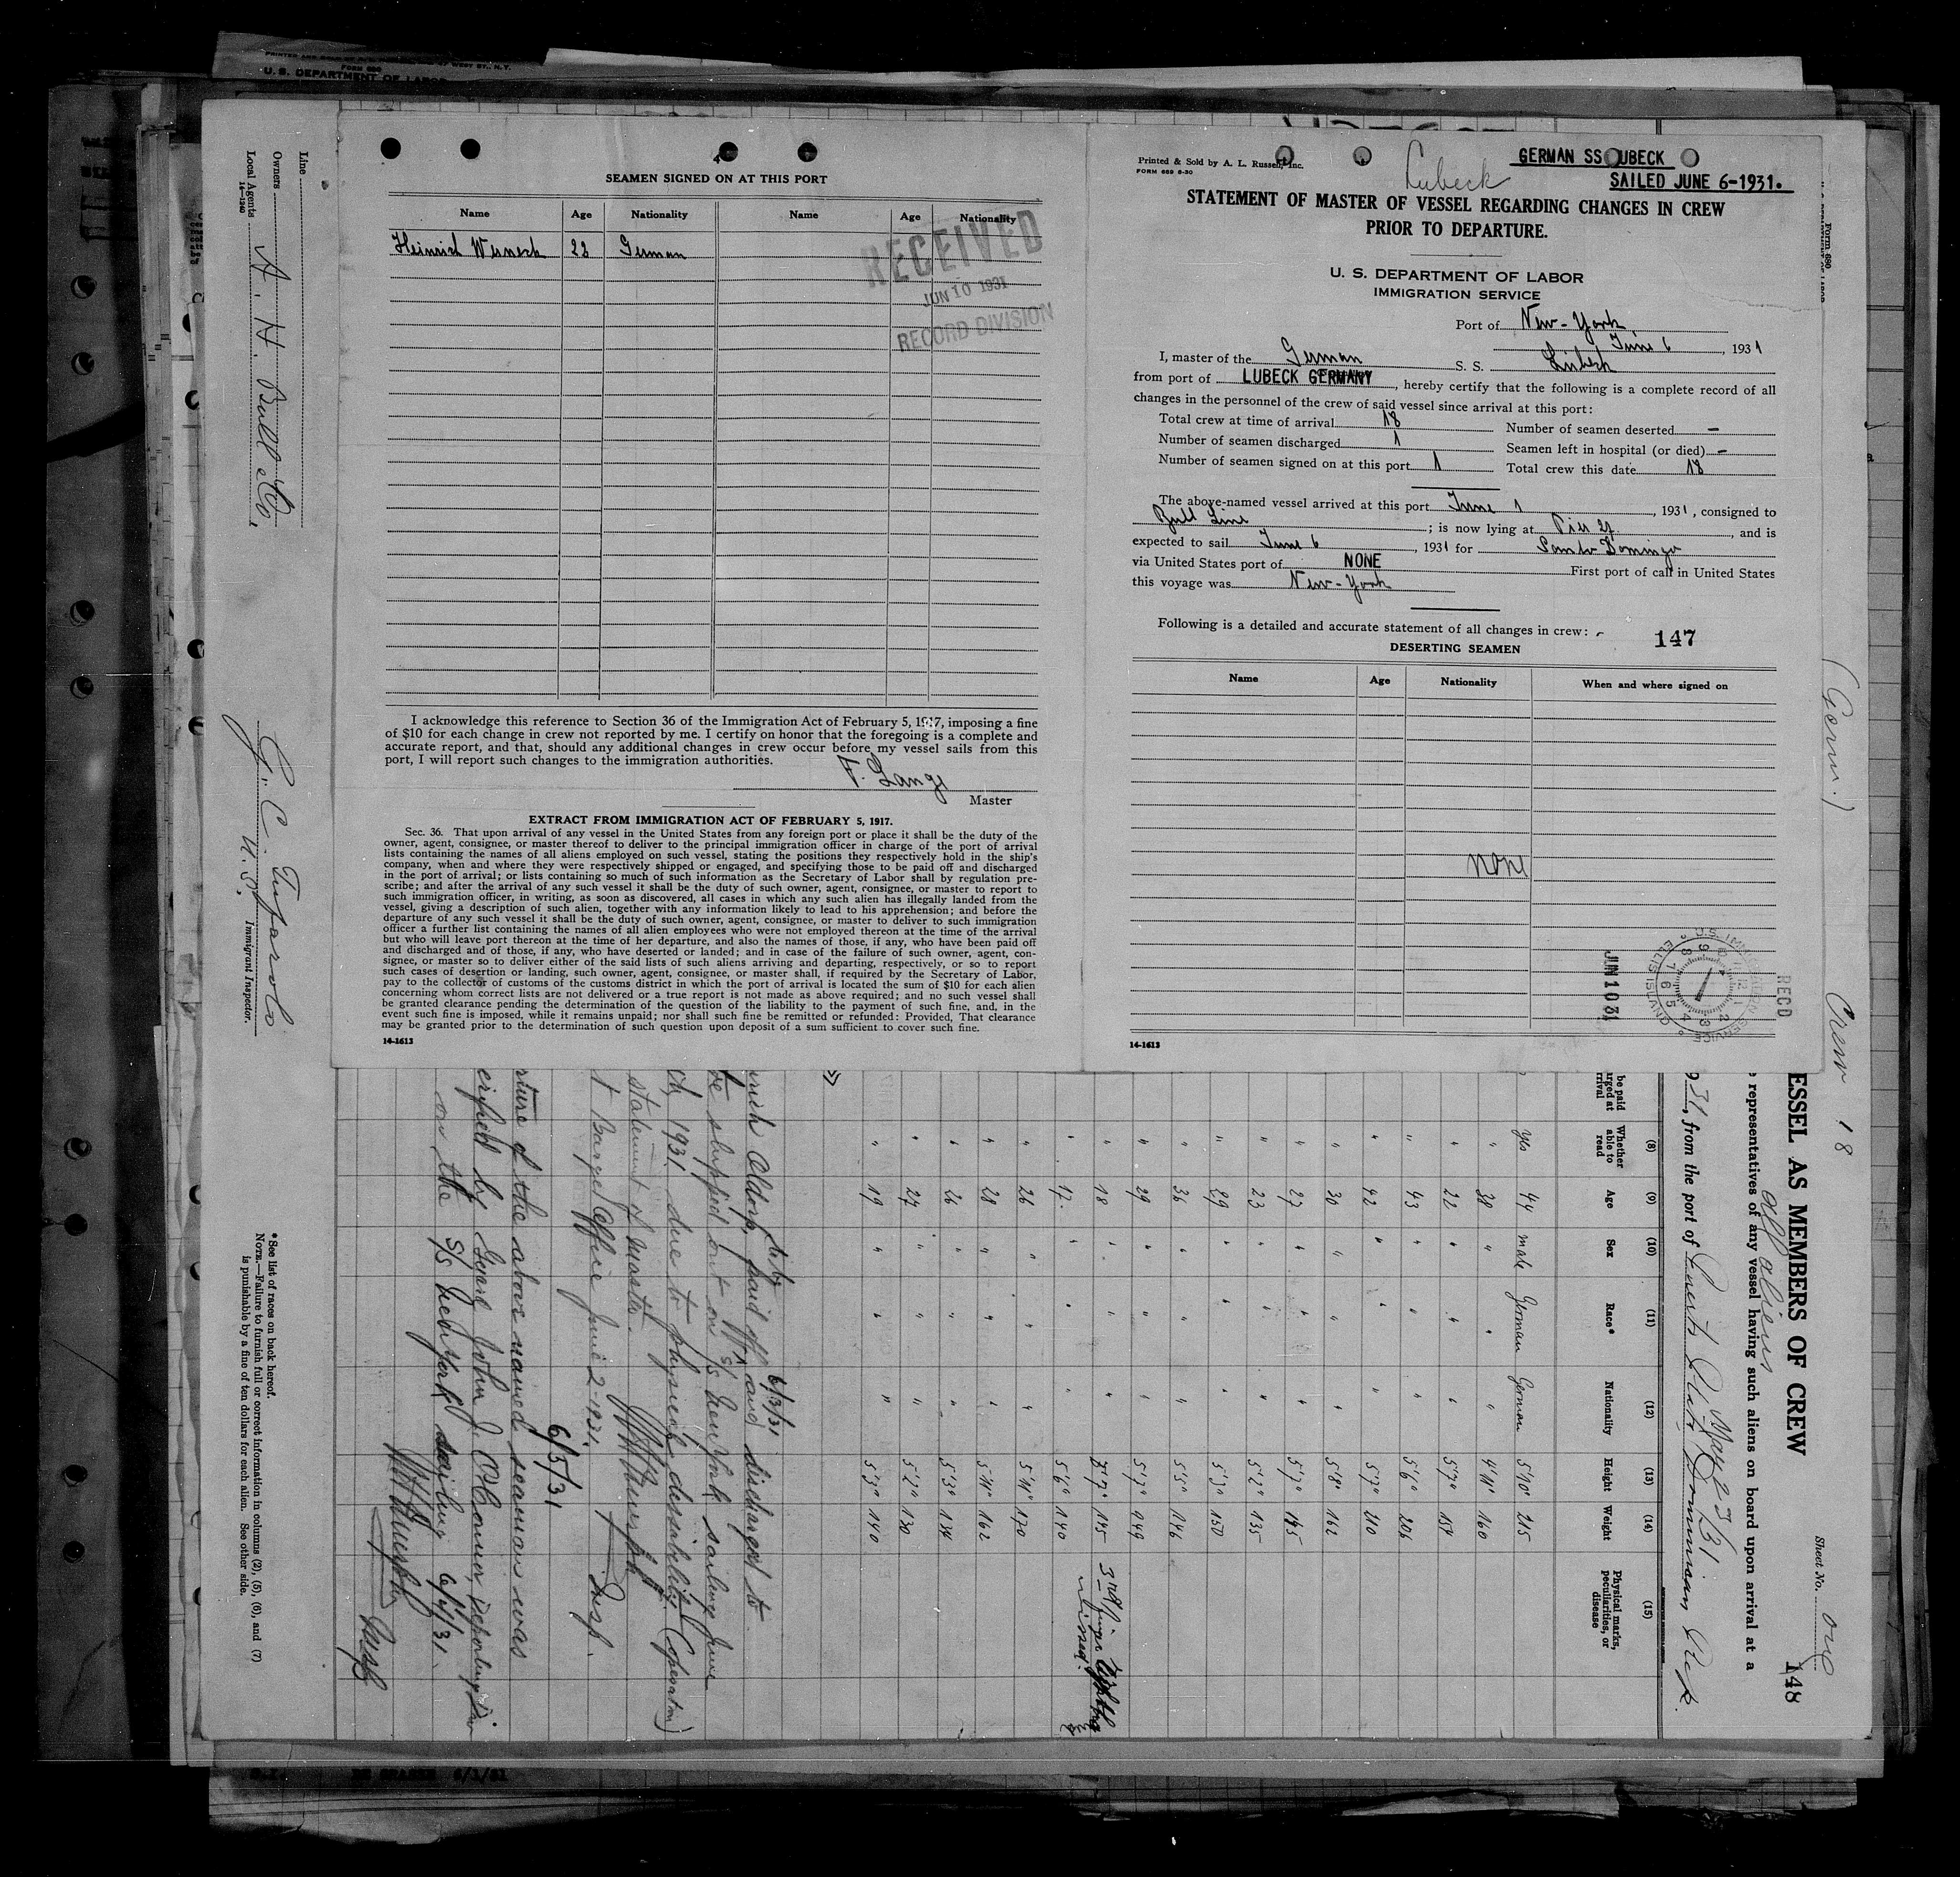 PRINTED AND
WEST ST., N.Y.
FORM 680
U. S. DEPARTMENT OF LABOR
Line
Owners
Local Agents A. H. Bull & Co.
14-1240
Immigrant Inspector.
4
SEAMEN SIGNED ON AT THIS PORT
Name Age Nationality Name Age Nationality
Heinrich 22 German
RECEIVED
JUN 10 1931
RECORD DIVISION
I acknowledge this reference to Section 36 of the Immigration Act of February 5, 1917, imposing a fine
of $10 for each change in crew not reported by me. I certify on honor that the foregoing is a complete and
accurate report, and that, should any additional changes in crew occur before my vessel sails from this
port, I will report such changes to the immigration authorities.
Lange
Master
EXTRACT FROM IMMIGRATION ACT OF FEBRUARY 5, 1917.
Sec. 36. That upon arrival of any vessel in the United States from any foreign port or place it shall be the duty of the
owner, agent, consignee, or master thereof to deliver to the principal immigration officer in charge of the port of arrival
lists containing the names of all aliens employed on such vessel, stating the positions they respectively hold in the ship's
company, when and where they were respectively shipped or engaged, and specifying those to be paid off and discharged
in the port of arrival; or lists containing so much of such information as the Secretary of Labor shall by regulation pre-
scribe; and after the arrival of any such vessel it shall be the duty of such owner, agent, consignee, or master to report to
such immigration officer, in writing, as soon as discovered, all cases in which any such alien has illegally landed from the
vessel, giving a description of such alien, together with any information likely to lead to his apprehension; and before the
departure of any such vessel it shall be the duty of such owner, agent, consignee, or master to deliver to such immigration
officer a further list containing the names of all alien employees who were not employed thereon at the time of the arrival
but who will leave port thereon at the time of her departure, and also the names of those, if any, who have been paid off
and discharged and of those, if any, who have deserted or landed; and in case of the failure of such owner, agent, con-
signee, or master so to deliver either of the said lists of such aliens arriving and departing, respectively, or so to report
such cases of desertion or landing, such owner, agent, consignee, or master shall, if required by the Secretary of Labor,
pay to the collector of customs of the customs district in which the port of arrival is located the sum of $10 for each alien
concerning whom correct lists are not delivered or a true report is not made as above required; and no such vessel shall
be granted clearance pending the determination of the question of the liability to the payment of such fine, and, in the
event such fine is imposed, while it remains unpaid; nor shall such fine be remitted or refunded: Provided, That clearance
may be granted prior to the determination of such question upon deposit of a sum sufficient to cover such fine.
14-1613
Printed & Sold by A. L. Russell, Inc.
FORM 689 6-30
Lubeck
GERMAN SS LUBECK
SAILED JUNE 6-1931.
STATEMENT OF MASTER OF VESSEL REGARDING CHANGES IN CREW
PRIOR TO DEPARTURE.
U. S. DEPARTMENT OF LABOR
IMMIGRATION SERVICE
Port of New-York
June 6, 1931
I, master of the German S. S. Lübeck
from port of LUBECK GERMANY, hereby certify that the following is a complete record of all
changes in the personnel of the crew of said vessel since arrival at this port:
Total crew at time of arrival 18 Number of seamen deserted -
Number of seamen discharged 1 Seamen left in hospital (or died) -
Number of seamen signed on at this port 1 Total crew this date 18
The above-named vessel arrived at this port June 1, 1931, consigned to
Bull Line; is now lying at Pier 27, and is
expected to sail June 6, 1931 for Santo Domingo
via United States port of NONE First port of call in United States
this voyage was New-York
Following is a detailed and accurate statement of all changes in crew:
147
DESERTING SEAMEN
Name Age Nationality When and where signed on
none
JUN 10 31
RECD
U.S. IMMIGRATION SERVICE
ELLIS ISLAND
14-1613
Form 680
(Germ.) Crew 18
Sheet No. one
148
ESSEL AS MEMBERS OF CREW
all aliens
representatives of any vessel having such aliens on board upon arrival at a
31, from the port of Puerto Plata Dominican Rep. May 23/31
(8) (9) (10) (11) (12) (13) (14) (15)
Whether able to read Age Sex Race* Nationality Height Weight Physical marks, peculiarities, or disease
yes 44 male German German 5'10" 215
" 38 " " " 4'11" 160
" 22 " " " 5'7" 154
" 43 " " " 5'6" 206
" 42 " " " 5'7" 210
" 30 " " " 5'8" 162
" 27 " " " 5'7" 145
" 23 " " " 5'2" 135
" 29 " " " 5'3" 150
" 36 " " " 5'5" 146
" 29 " " " 5'7" 149
" 18 " " " 5'7" 145 3rd finger missed
" 17 " " " 5'6" 140
" 26 " " " 5'11" 170
" 28 " " " 5'11" 162
" 26 " " " 5'3" 134
" 27 " " " 5'2" 130
" 19 " " " 5'3" 140
6/3/31
rich Aldorp, to be paid off and discharged to
be shipped out on S/S New York sailing June
1931 due to physical disability (operation)
statement of Master.
Insp.
t Barge Office June 2-1931.
6/5/31
rture of the above named seaman was
erified by Guard John J. O'Connor, reporting him
on the S/S New York sailing 6/4/31.
Insp
*See list of races on back hereof.
NOTE.—Failure to furnish full or correct information in columns (2), (5), (6), and (7)
is punishable by a fine of ten dollars for each alien. See other side.